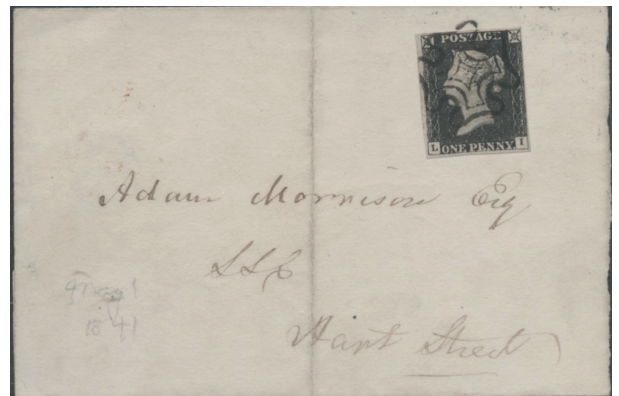 POSTAGE
L ONE PENNY I
Adam Morrison Esq
SSC
Hart Street
1841